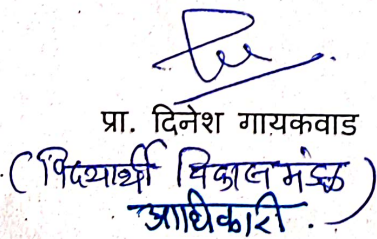 प्रा. दिनेश गायकवाड
(विद्यार्थी विकास मंडळ
अधिकारी.)